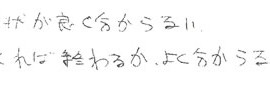 が良く分からるい
れば終わるか、よく分からる